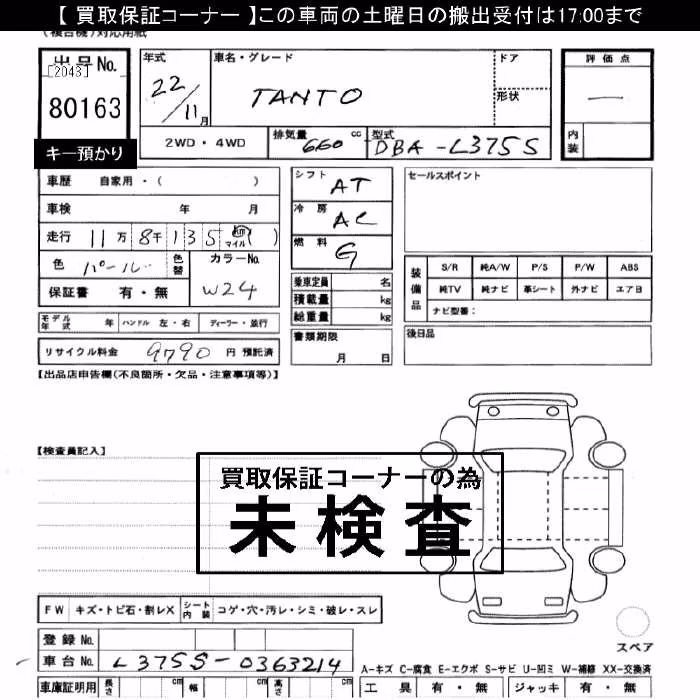 【 買取保証コーナー 】この車両の土曜日の搬出受付は17:00まで
(複合機)対応用紙
出品No.
[2043]
80163
キー預かり
年式
22/11月
車名・グレード
TANTO
ドア
形状
評価点
―
内装
2WD・4WD
排気量 660 cc
型式 DBA-L375S
車歴 自家用・( )
車検 年 月
走行 11万 8千 135 km マイル ( )
色 パール
色替
カラーNo. W24
保証書 有・無
シフト AT
冷房 AC
燃料 G
乗車定員 名
積載量 kg
総重量 kg
セールスポイント
装備品
S/R 純A/W P/S P/W ABS
純TV 純ナビ 革シート 外ナビ エアB
ナビ型番:
モデル年式 年 ハンドル 左・右 ディーラー・並行
リサイクル料金 9790 円 預託済
書類期限
月 日
後日品
【出品店申告欄(不良箇所・欠品・注意事項等)】
【検査員記入】
買取保証コーナーの為
未検査
FW キズ・トビ石・割レX シート内装 コゲ・穴・汚レ・シミ・破レ・スレ
スペア
登録No.
車台No. L375S-0363214
A-キズ C-腐食 E-エクボ S-サビ U-凹ミ W-補修 XX-交換済
車庫証明用 長さ cm 幅 cm 高さ cm
工具 有・無 ジャッキ 有・無